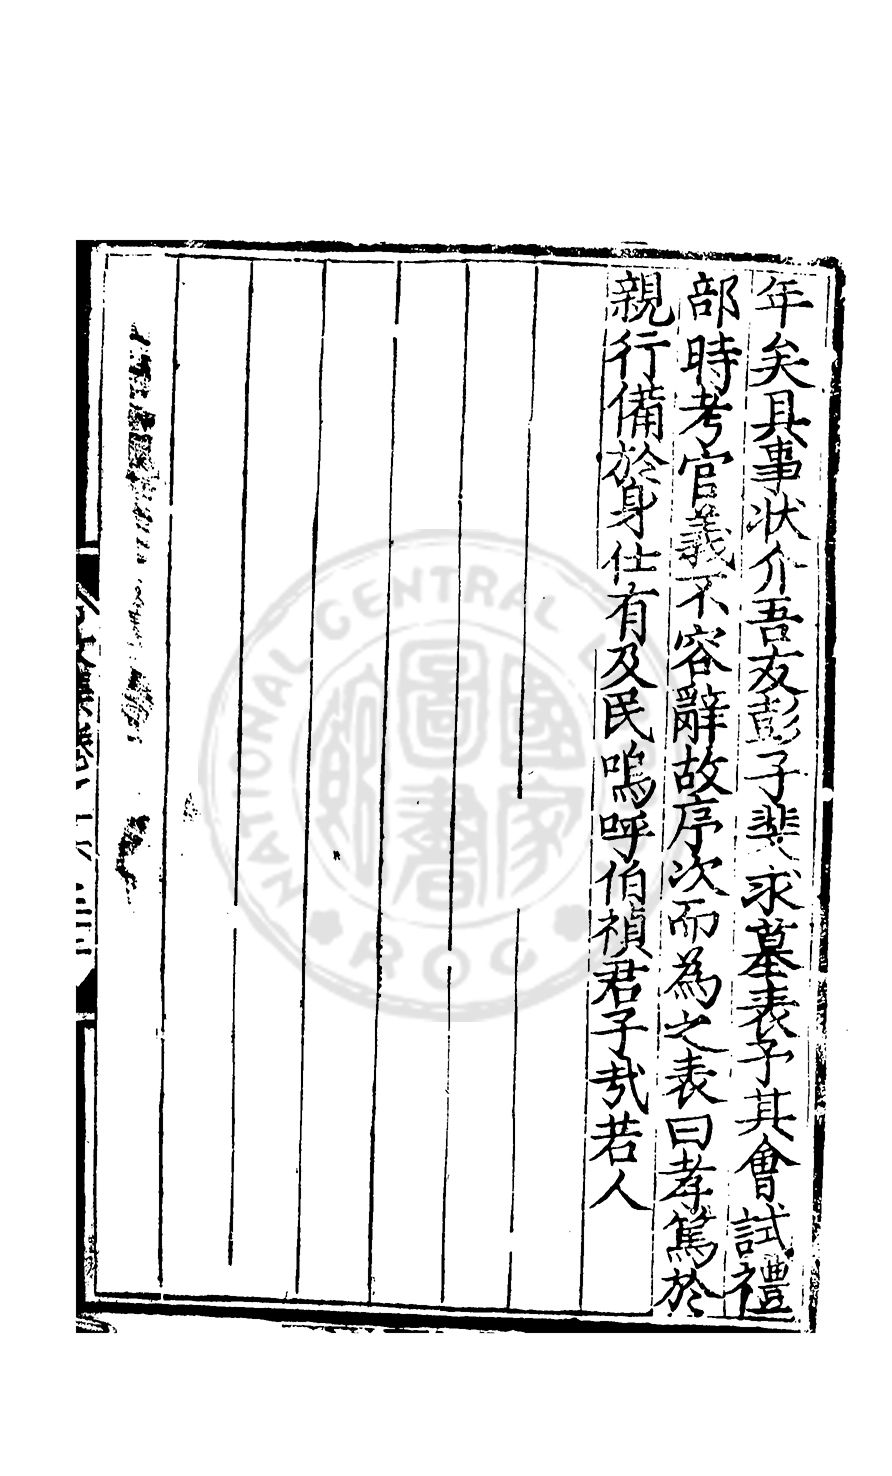 年矣具事狀介吾友彭子斐求墓表予其會試禮
部時考官義不容辭故序次而為之表曰孝篤於
親行備於身仕有及民嗚呼伯禎君子㢤若人
NATIONAL CENTRAL
ROC
國家圖書館